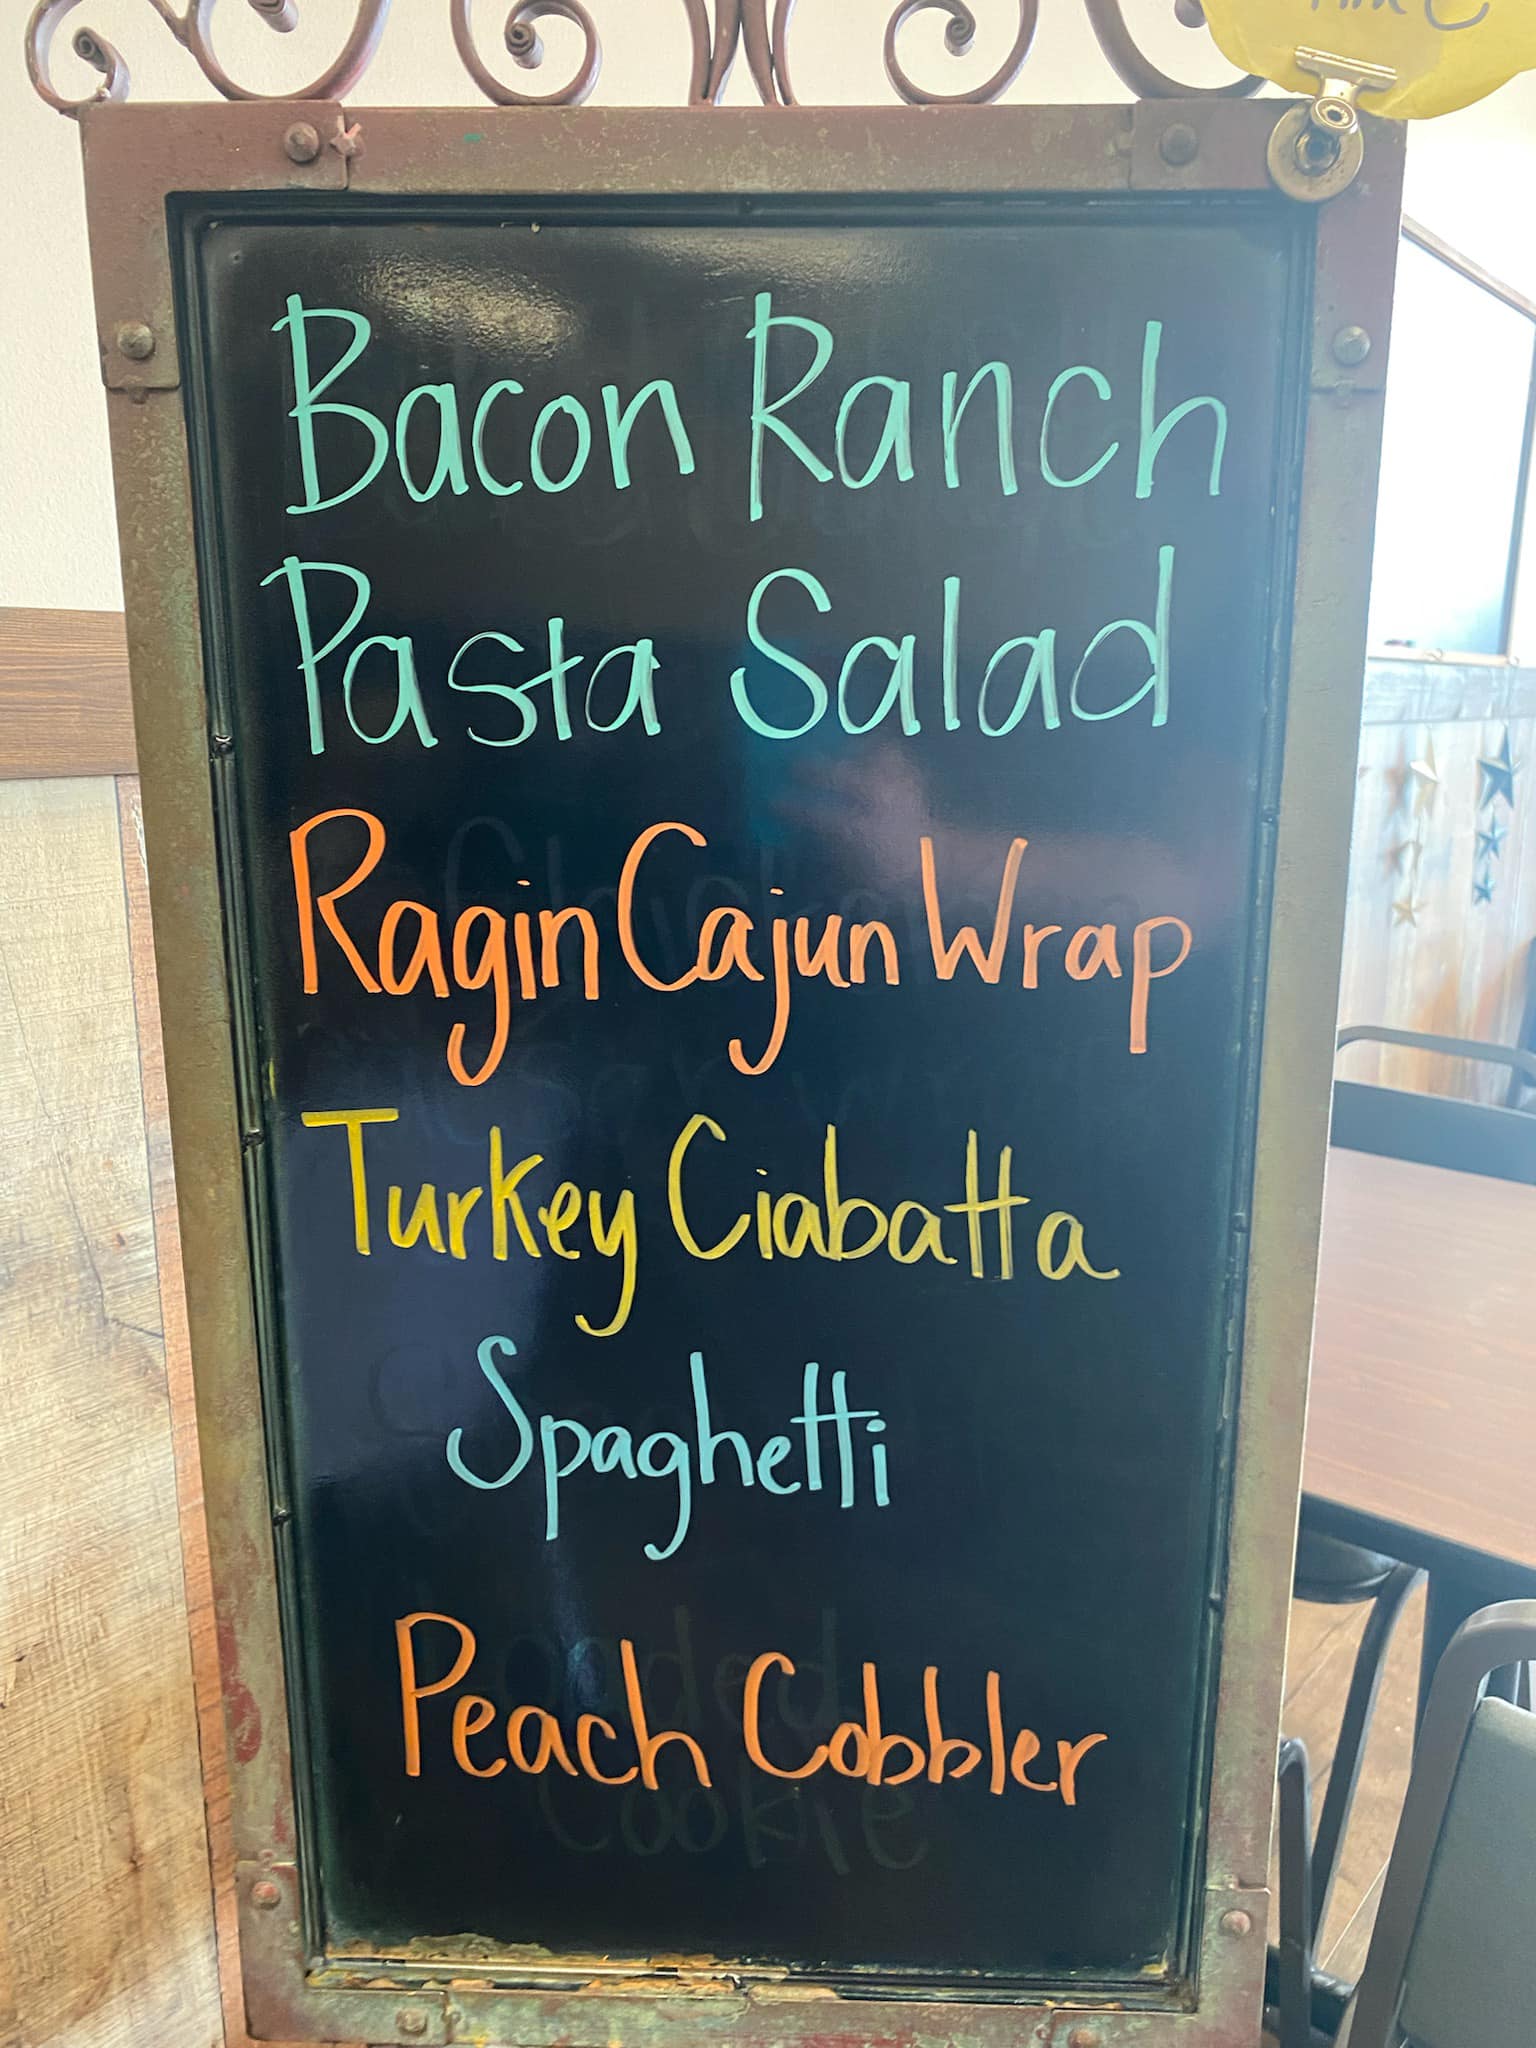 Bacon Ranch
Pasta Salad
Ragin Cajun Wrap
Turkey Ciabatta
Spaghetti
Peach Cobbler
Cookie